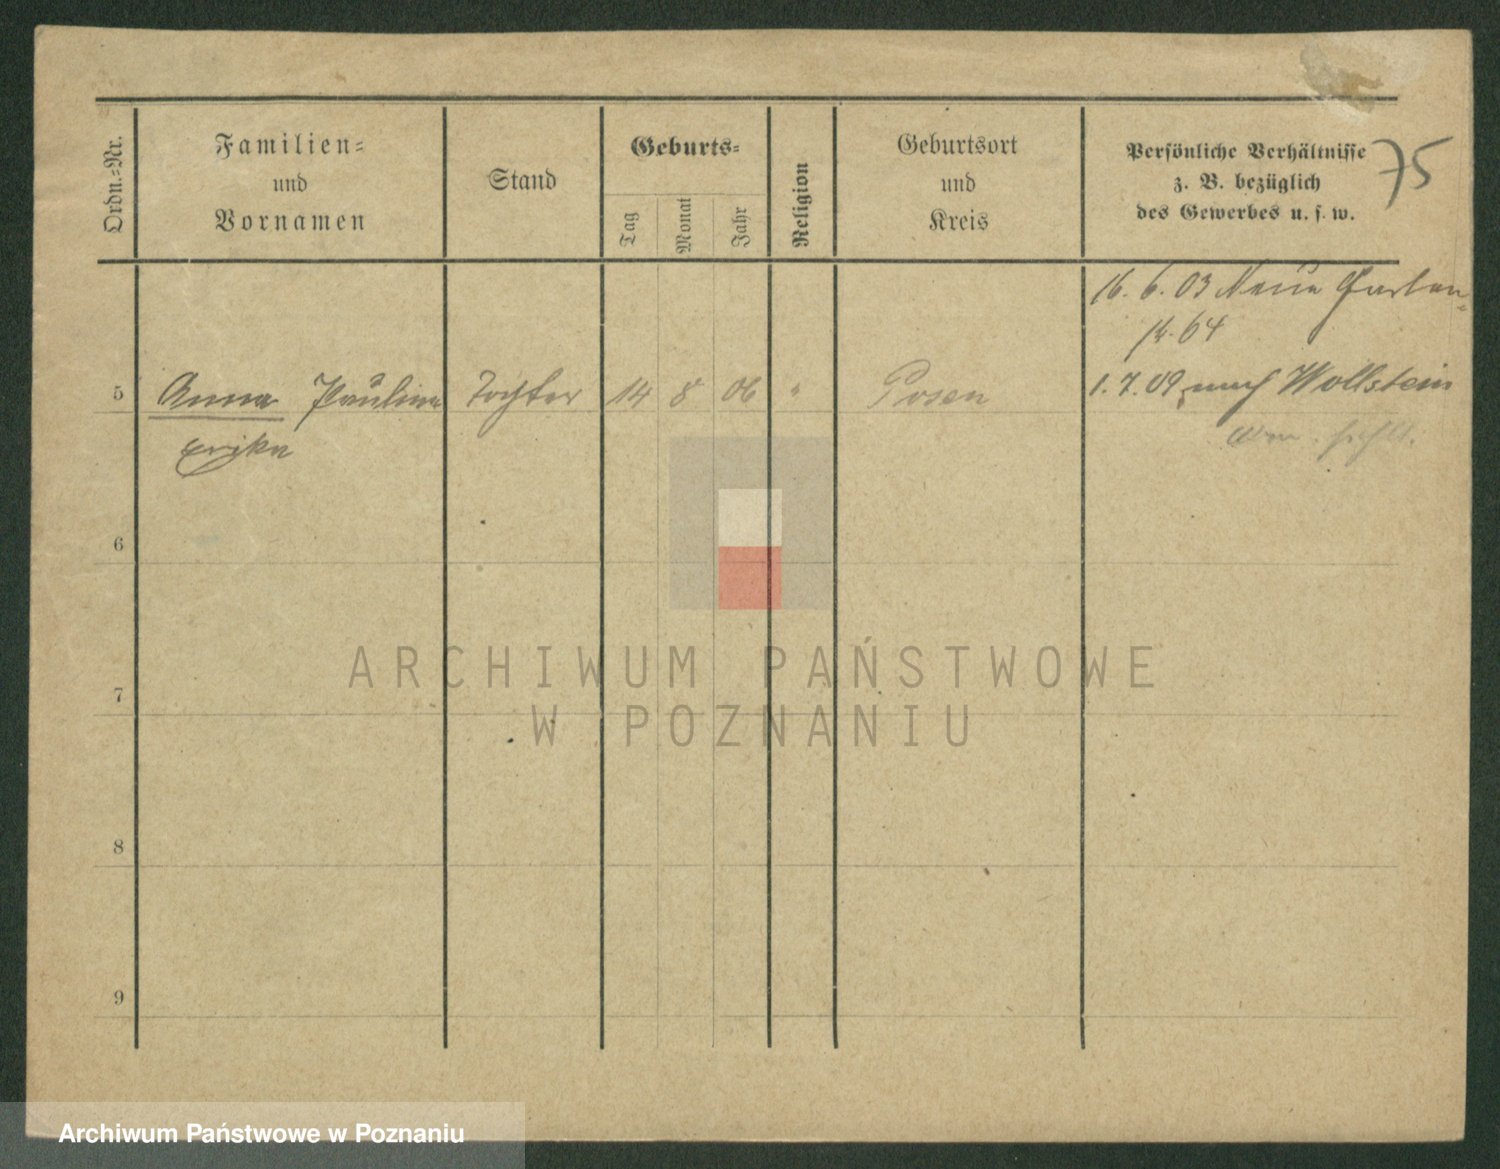 Ordn.=Nr.
Familien=
und
Vornamen
Stand
Geburts=
Tag
Monat
Jahr
Religion
Geburtsort
und
Kreis
Persönliche Verhältnisse
z. B. bezüglich
des Gewerbes u. s. w.
75
16. 6. 03 Neue Garten=
64
5 Anna Pauline Tochter 14 8 06 " Posen 1. 7. 09 nach Wollstein
Erika
6
7
8
9
ARCHIWUM PAŃSTWOWE
W POZNANIU
Archiwum Państwowe w Poznaniu